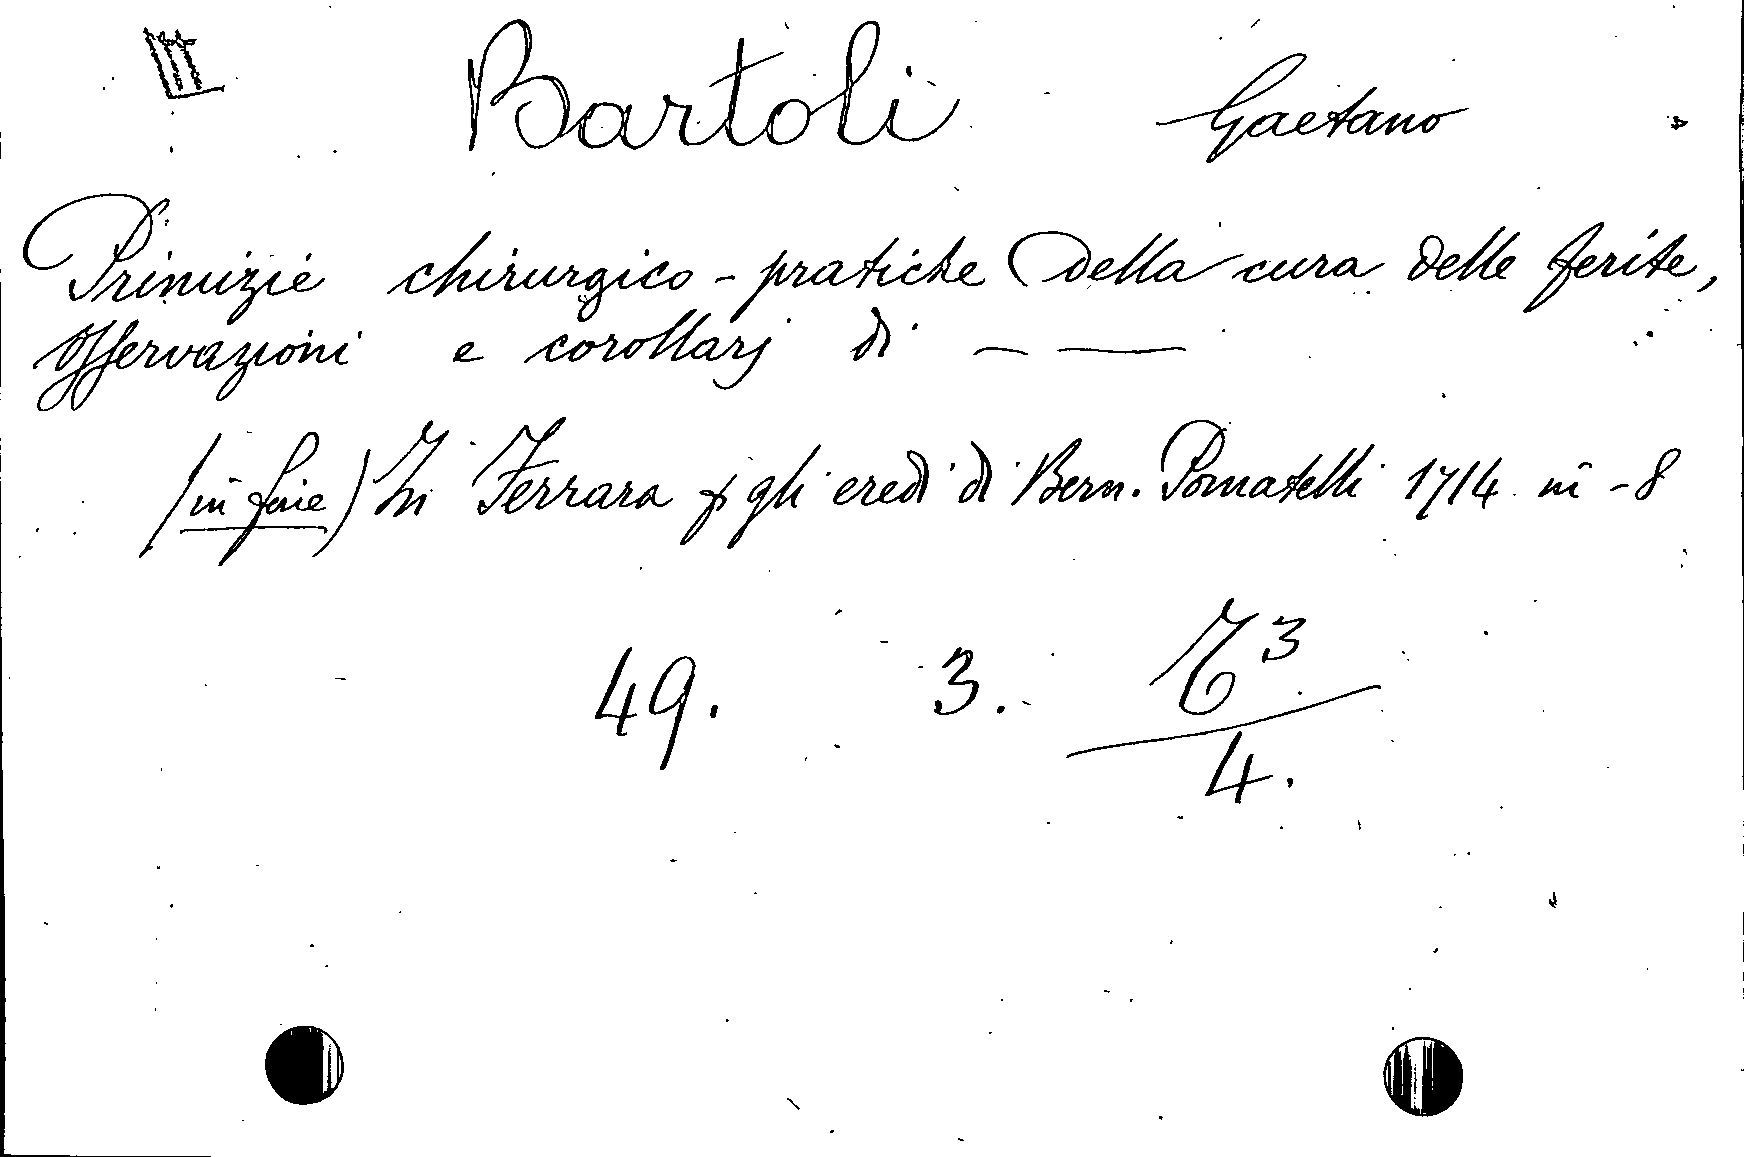 Bartoli Gaetano
Primizie chirurgico-pratiche Della cura delle ferite,
Osservazioni e corollarj di — —
(in fine) In Ferrara p gli eredi di Bern. Pomatelli 1714 in-8
49. 3. T³
4.